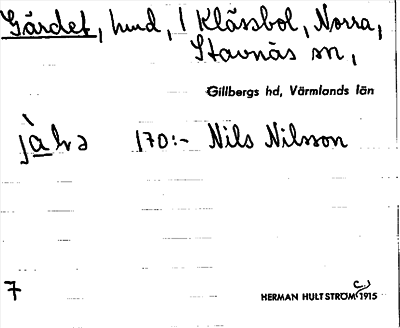 Gärdet, hmd, / Klässbol, Norra,
Stavnäs sn,
Gillbergs hd, Värmlands län
170:- Nils Nilsson
7
HERMAN HULTSTRÖM 1915